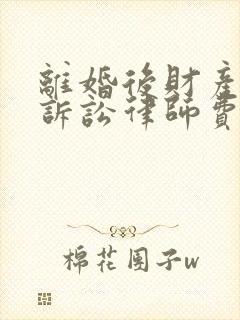 離婚後財產
訴訟律師費
棉花團子w